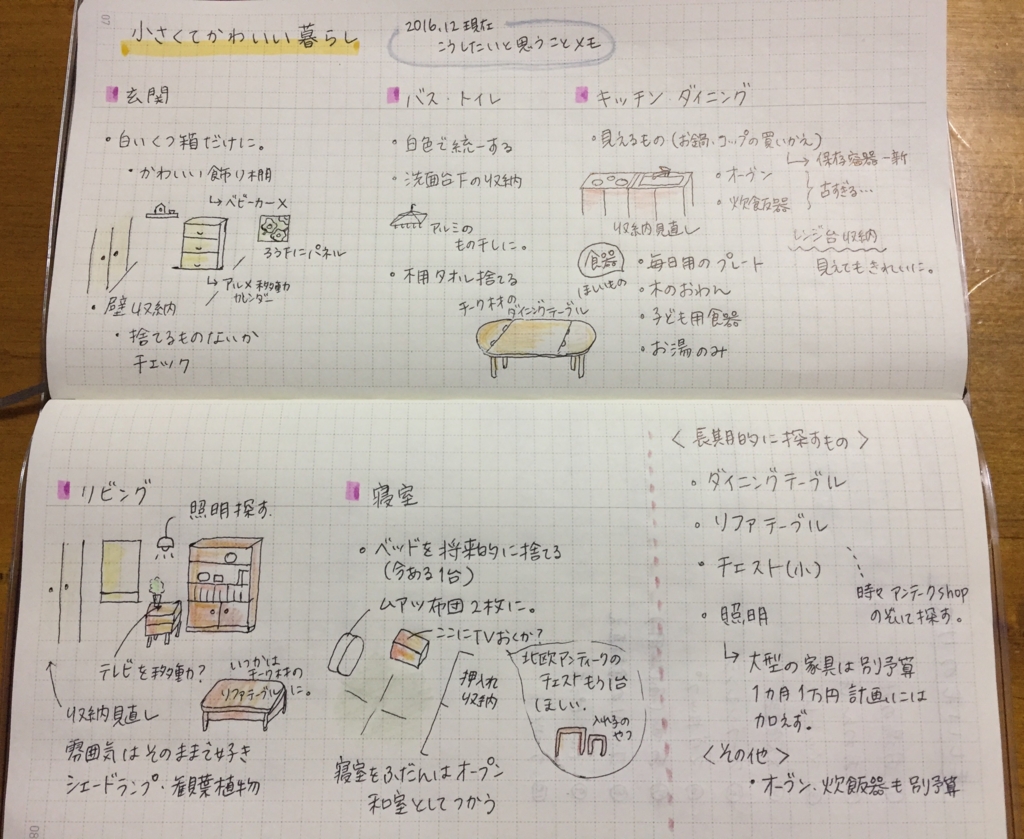 07
小さくてかわいい暮らし
2016.12 現在
こうしたいと思うことメモ
玄関
・白いくつ箱だけに。
・かわいい飾り棚
↳ベビーカー×
ろう下にパネル
↳アルメ 移動
カレンダー
・壁収納
・捨てるものないか
チェック
バス・トイレ
・白色で統一する
・洗面台下の収納
アルミの
もの干しに。
・不用タオル捨てる
キッチン・ダイニング
・見えるもの(お鍋・コップの買いかえ)
↳保存容器一新
・オーブン
・炊飯器
古すぎる…
収納見直し
レンジ台収納
見えてもきれいに。
食器
ほしいもの
・毎日用のプレート
・木のおわん
・子ども用食器
・お湯のみ
チーク材の
ダイニングテーブル
リビング
照明探す
テレビを移動?
いつかは
チーク材の
リファテーブル
に。
収納見直し
雰囲気はそのままで好き
シェードランプ・観葉植物
寝室
・ベッドを将来的に捨てる
(今ある1台)
ムアツ布団2枚に。
ここにTVおくか?
押入れ
収納
北欧アンティークの
チェストもう1台
ほしい。
入れ子の
やつ
寝室をふだんはオープン
和室としてつかう
<長期的に探すもの>
・ダイニングテーブル
・リファテーブル
・チェスト(小)
・照明
時々アンテークshop
のぞいて探す。
↳大型の家具は別予算
1カ月1万円計画には
加えず。
<その他>
・オーブン・炊飯器も別予算
08